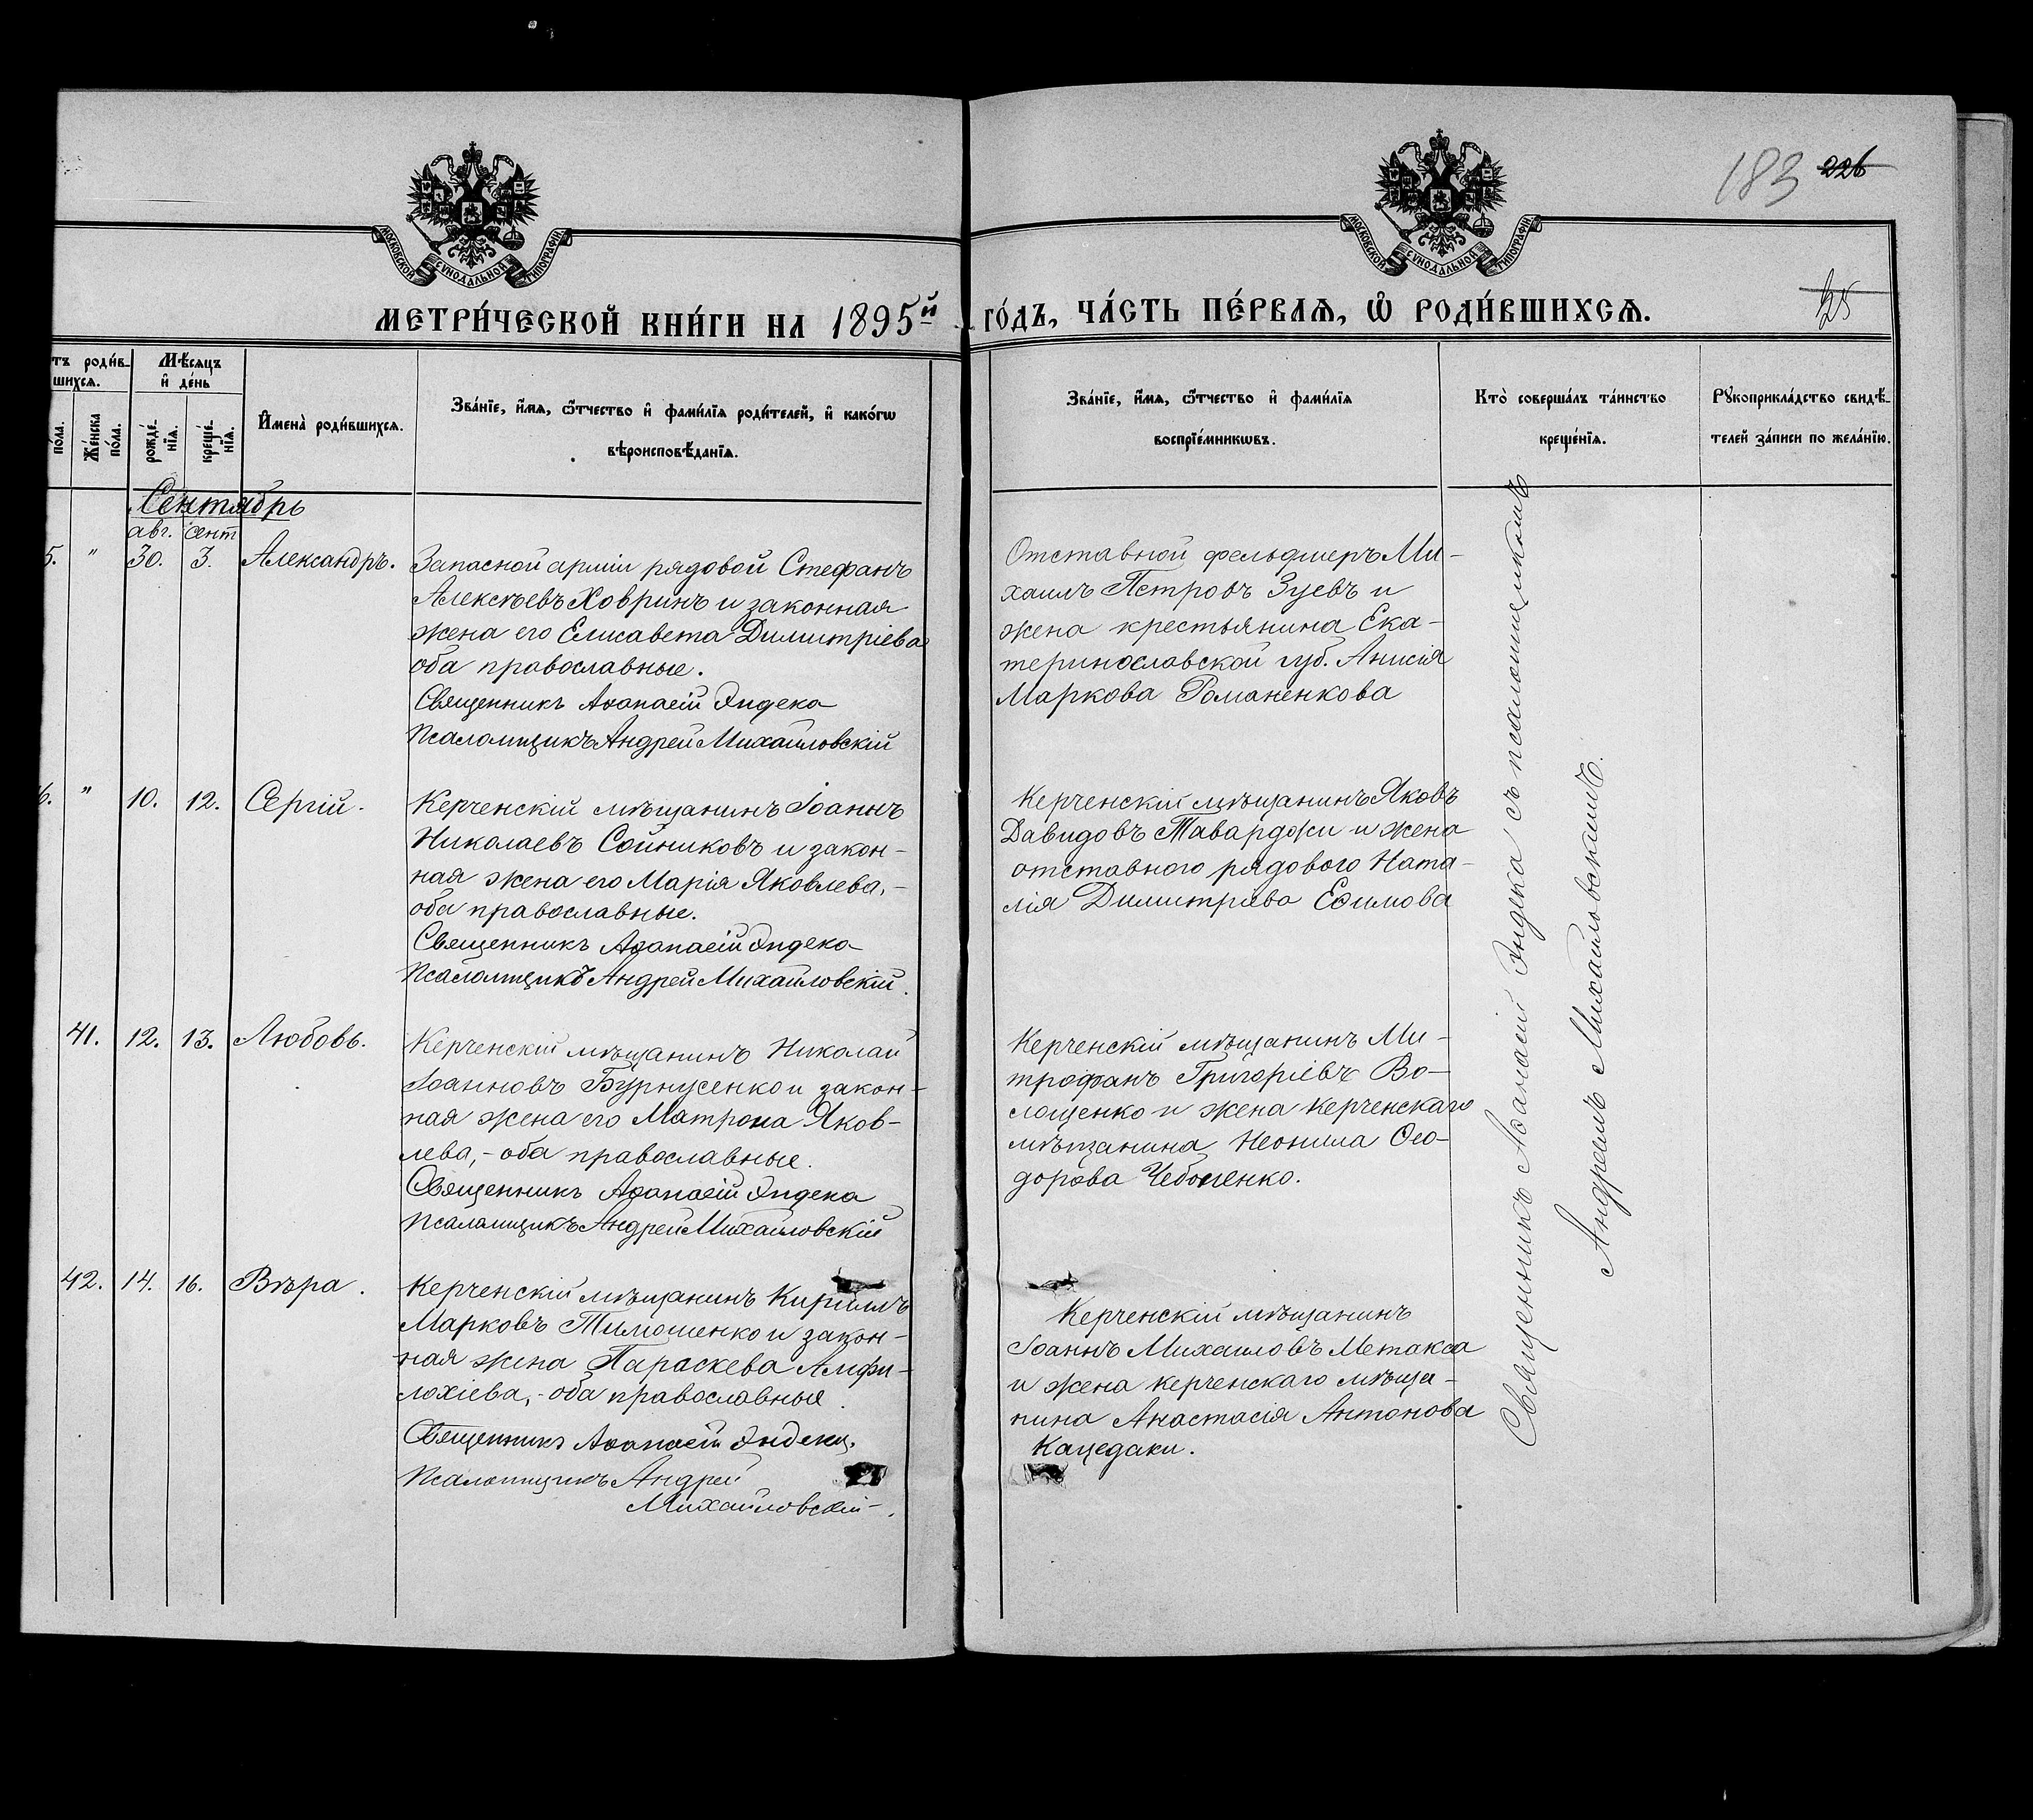 183 226
МОСКОВСКОЙ СУНОДАЛЬНОЙ ТИПОГРАФІИ
МОСКОВСКОЙ СУНОДАЛЬНОЙ ТИПОГРАФІИ
МЕТРИ́ЧЕСКОЙ КНИ́ГИ НА 1895й ГО́ДЪ, ЧА́СТЬ ПЕ́РВАѦ, Ѽ РОДИ́ВШИХСѦ.
тъ роди́в-
шихсѧ.
Мѣ́сѧцъ
и҆ де́нь
по́ла.
Же́нска
по́ла.
рожде́-
нїѧ.
креще́-
нїѧ.
И҆мена̀ роди́вшихсѧ.
Зва́нїе, и҆́мѧ, ѻ҆́тчество и҆ фами́лїѧ роди́телей, и҆ како́гѡ
вѣроисповѣ́данїѧ.
Зва́нїе, и҆́мѧ, ѻ҆́тчество и҆ фами́лїѧ
воспрїе́мникѡвъ.
Кто̀ соверша́лъ та́инство
креще́нїѧ.
Рꙋкоприкла́дство свидѣ́-
телей за́писи по жела́нїю.
Сентябрь
авг. сент
5. " 30. 3. Александръ.
Запасной арміи рядовой Стефанъ
Алексѣевъ Ховринъ и законная
жена его Елисавета Димитріева
оба православные.
Священникъ Аѳанасій Эндека
Псаломщикъ Андрей Михайловскій
Отставной фельдшеръ Ми-
хаилъ Петровъ Зуевъ и
жена крестьянина Ека-
теринославской губ. Анисія
Маркова Романенкова
6. " 10. 12. Сергій.
Керченскій мѣщанинъ Іоаннъ
Николаевъ Сойниковъ и закон-
ная жена его Марія Яковлева,-
оба православные.
Священникъ Аѳанасій Эндека
Псаломщикъ Андрей Михайловскій.
Керченскій мѣщанинъ Яковъ
Давидовъ Тавардожи и жена
отставного рядового Ната-
лія Димитріева Ефимова
41. 12. 13. Любовь.
Керченскій мѣщанинъ Николай
Іоанновъ Бурнусенко и закон-
ная жена его Матрона Яков-
лева,- оба православные.
Священникъ Аѳанасій Эндека
Псаломщикъ Андрей Михайловскій
Керченскій мѣщанинъ Ми-
трофанъ Григоріевъ Во-
лощенко и жена керченскаго
мѣщанина Неонила Ѳео-
дорова Чебоненко.
42. 14. 16. Вѣра.
Керченскій мѣщанинъ Кириллъ
Марковъ Тимошенко и закон-
ная жена Параскева Амфи-
лохіева,- оба православные.
Священникъ Аѳанасій Эндека.
Псаломщикъ Андрей
Михайловскій.
Керченскій мѣщанинъ
Іоаннъ Михаиловъ Метакса
и жена керченскаго мѣща-
нина Анастасія Антонова
Кацедаки.
Священникъ Аѳанасій Эндека съ псаломщикомъ
Андреемъ Михайловскимъ.